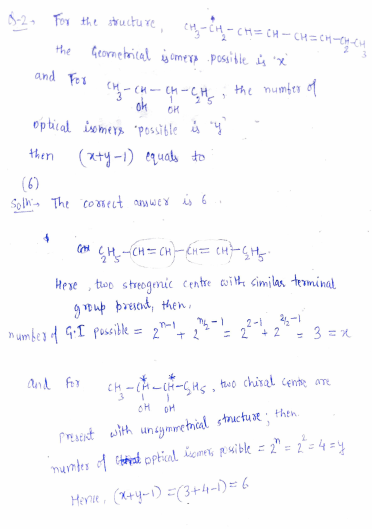 Q-2. For the structure, CH3-CH2-CH=CH-CH=CH-CH2-CH3
the Geometrical isomers possible is 'x'
and For CH3-CH-CH-C2H5, the number of
OH OH
optical isomers possible is "y"
then (x+y-1) equals to
(6)
Solⁿ:- The correct answer is 6.
C2H5-CH=CH-CH=CH-C2H5
Here, two streogenic centre with similar terminal
group present, then,
number of G.I possible = 2^(n-1) + 2^(n/2-1) = 2^(2-1) + 2^(2/2-1) = 3 = x
and For CH3-C*H-C*H-C2H5, two chiral centre are
OH OH
present with unsymmetrical structure; then
number of optical isomers possible = 2^n = 2^2 = 4 = y
Hence, (x+y-1) = (3+4-1) = 6